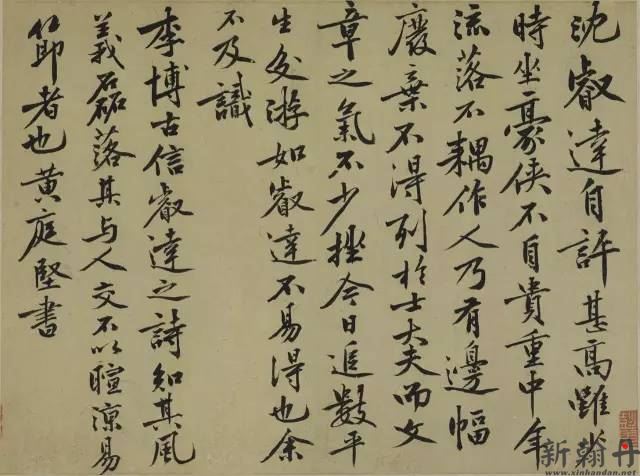 沈叡達自評甚高雖少
時坐豪俠不自貴重中年
流落不耦作人乃有邊幅
廢棄不得列於士大夫而文
章之氣不少挫今日追數平
生交游如叡達不易得也余
不及識
李博古信叡達之詩知其風
義磊落其与人交不以暄涼易
節者也黃庭堅書
新翰丹
www.xinhandan.net